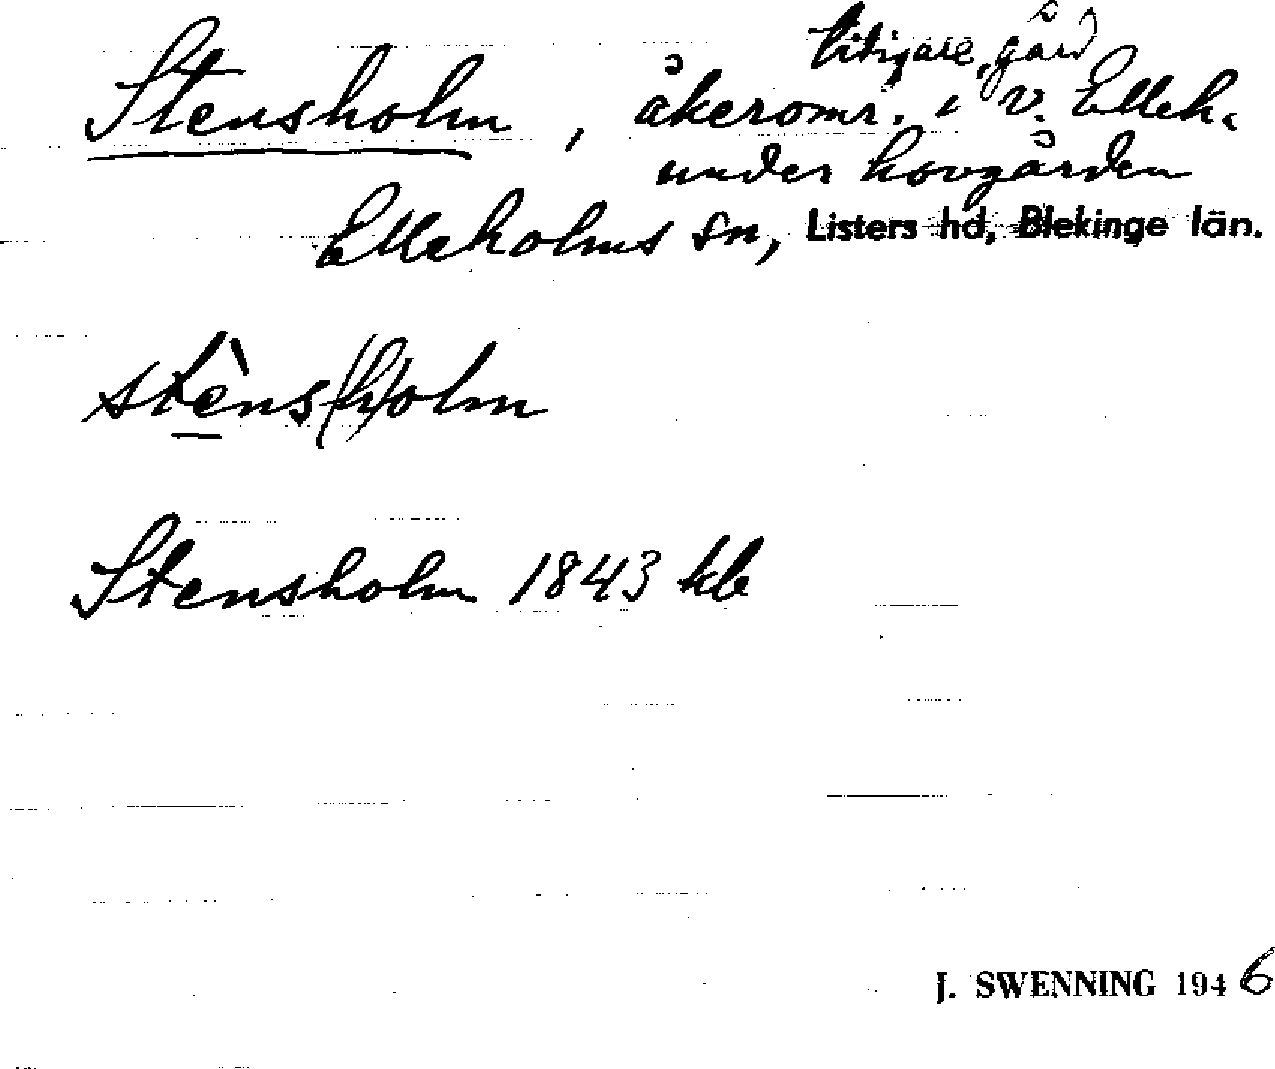 tidigare gård
Stensholm, åkeromr. i V. Elleh.
under hovgården
Elleholms sn, Listers hd, Blekinge län.
stèns(h)olm
Stensholm 1843 kb
J. SWENNING 1946